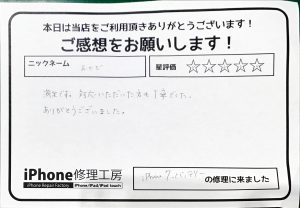 本日は当店をご利用頂きありがとうございます!
ご感想をお願いします!
ニックネーム
星評価 ☆☆☆☆☆
対応いただいた方も丁寧でした。
ありがとうございました。
iPhone修理工房
iPhone Repair Factory iPhone/iPad/iPod touch
iPhone 7 バッテリー の修理に来ました